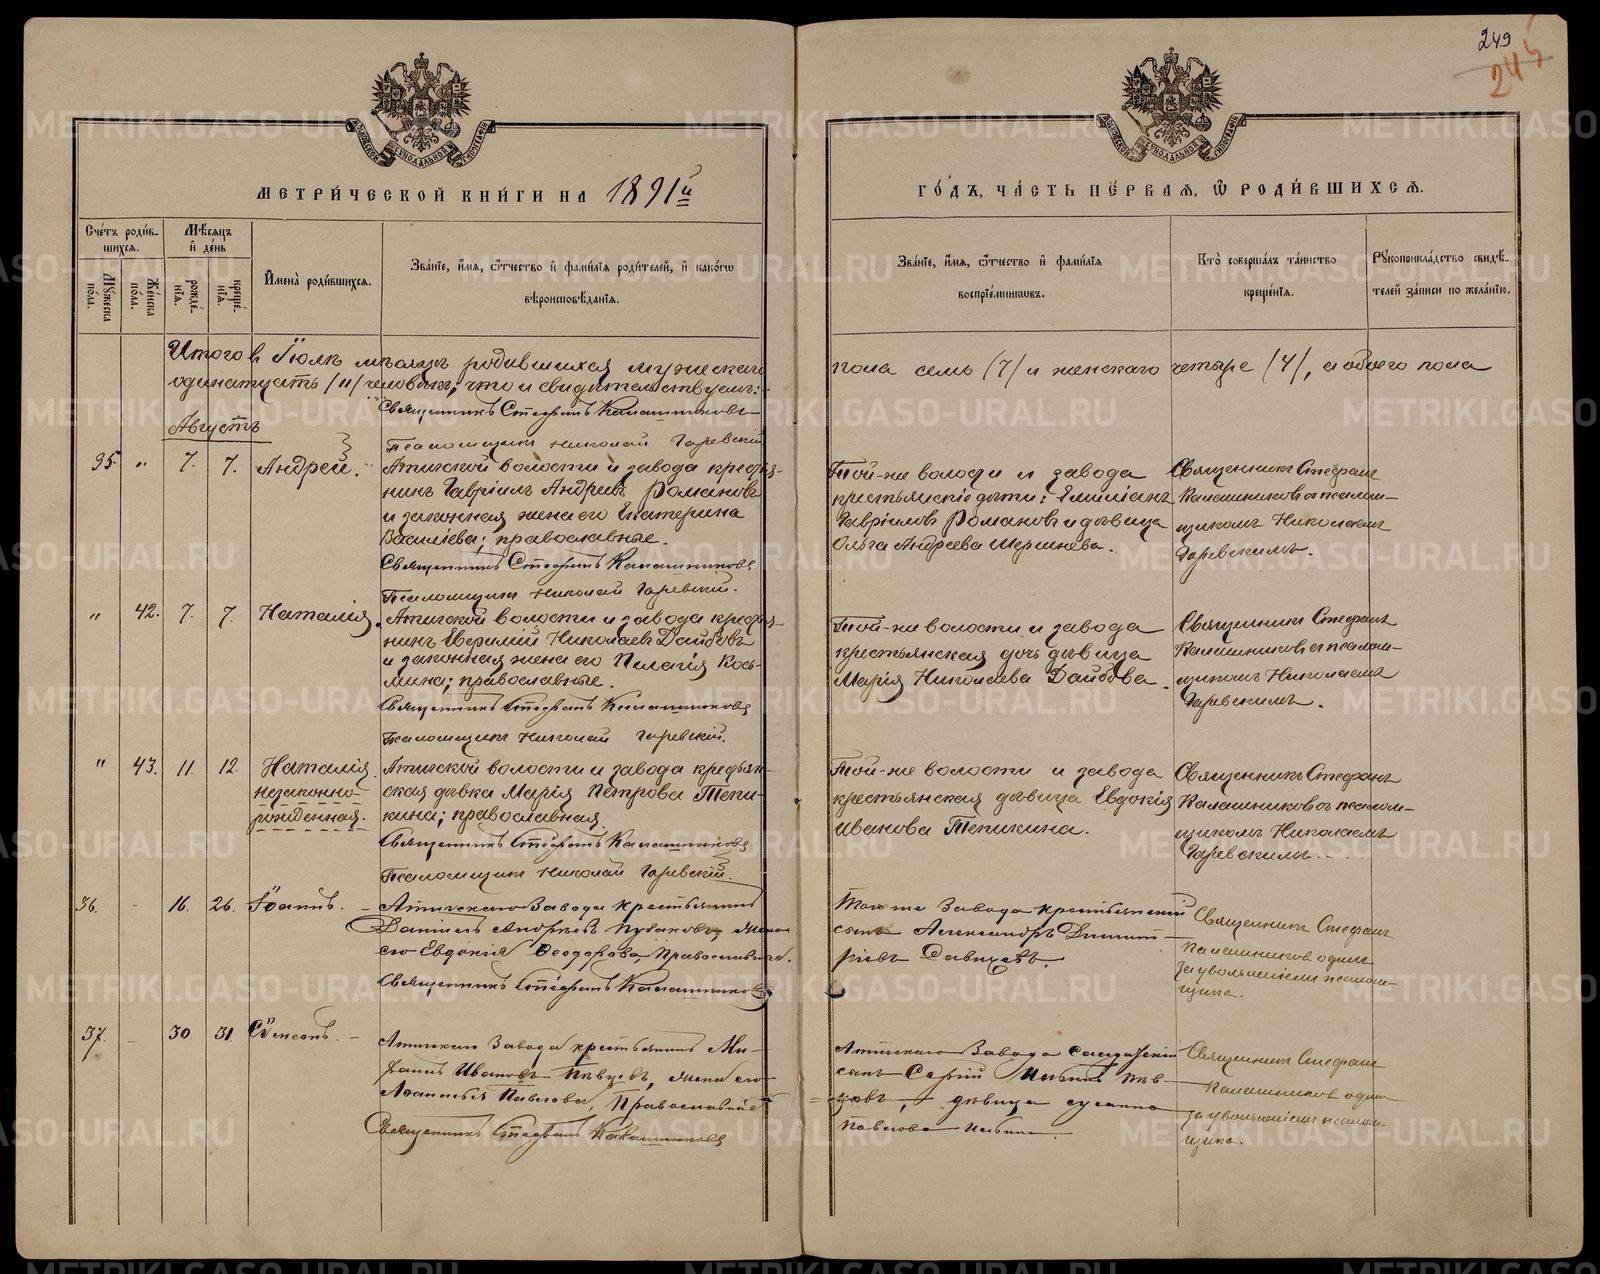 249
245
МЕТРИ́ЧЕСКОЙ КНИ́ГИ НА 1891й
ГО́ДЪ, ЧА́СТЬ ПЕ́РВАЯ, Ѡ РОДИ́ВШИХСѦ.
Сче́тъ роди́в-
шихсѧ.
Мꙋ́жеска
по́ла.
Же́нска
по́ла.
Мѣ́сяцъ
и҆ де́нь
рожде́-
нїѧ.
креще́-
нїѧ.
И҆мена̀ роди́вшихсѧ.
Зва́нїе, и҆́мѧ, ѻ҆́тчество и҆ фами́лїѧ роди́телей, и҆ како́гѡ
вѣроисповѣ́данїѧ.
Зва́нїе, и҆́мѧ, ѻ҆́тчество и҆ фами́лїѧ
воспрїе́мникѡвъ.
Кто̀ соверша́лъ та́инство
креще́нїѧ.
Рꙋкоприкла́дство свидѣ́-
телей за́писи по жела́нїю.
Итого в Іюлѣ мѣсяцѣ родившихся мужескаго пола семь (7) и женскаго четыре (4), а обоего пола
одинатцать (11) человѣкъ, что и свидѣтельствуемъ:
Священникъ Стефанъ Калашниковъ
Августъ
Псаломщикъ Николай Гаревскій
35. " 7. 7. Андрей.
Атигской волости и завода крестья-
нинъ Гавріилъ Андреевъ Романовъ
и законная жена его Екатерина
Василіева; православные.
Священникъ Стефанъ Калашниковъ
Псаломщикъ Николай Гаревскій.
Той-же волости и завода
крестьянскіе дѣти: Емиліанъ
Гавріиловъ Романовъ и дѣвица
Ольга Андреева Шершнева.
Священникъ Стефанъ
Калашниковъ съ псалом-
щикомъ Николаемъ
Гаревскимъ.
" 42. 7. 7. Наталія.
Атигской волости и завода крестья-
нинъ Евфимій Николаевъ Даибовъ
и законная жена его Пелагія Кось-
мина; православные.
Священникъ Стефанъ Калашниковъ
Псаломщикъ Николай Гаревскій.
Той-же волости и завода
крестьянская дочь дѣвица
Марія Николаева Даибова.
Священникъ Стефанъ
Калашниковъ съ псалом-
щикомъ Николаемъ
Гаревскимъ.
" 43. 11. 12. Наталія.
незаконно-
рожденная.
Атигской волости и завода крестьян-
ская дѣвка Марія Петрова Тепи-
кина; православная.
Священникъ Стефанъ Калашниковъ
Псаломщикъ Николай Гаревскій.
Той-же волости и завода
крестьянская дѣвица Евдокія
Иванова Тепикина.
Священникъ Стефанъ
Калашниковъ съ псалом-
щикомъ Николаемъ
Гаревскимъ.
36. - 16. 26. Іоаннъ.
Атигскаго Завода крестьянинъ
Даніилъ Андреевъ Пузаковъ, жена
его Евдокія Ѳеодорова, Православные.
Священникъ Стефанъ Калашниковъ
Того же Завода крестьянскій
сынъ Александръ Димит-
ріевъ
Священникъ Стефанъ
Калашниковъ одинъ
за увольненіемъ псалом-
щика.
37. - 30 31. Симеонъ.
Атигскаго Завода крестьянинъ Ми-
хаилъ Ивановъ Пѣвцевъ, жена его
Аѳанасія Павлова, Православные
Священникъ Стефанъ Калашниковъ
Атигскаго Завода Солдатскій
сынъ Сергій Ильинъ Пѣв-
цовъ, дѣвица Сусанна
Павлова Ильина.
Священникъ Стефанъ
Калашниковъ одинъ
за увольненіемъ псалом-
щика.
METRIKI.GASO-URAL.RU